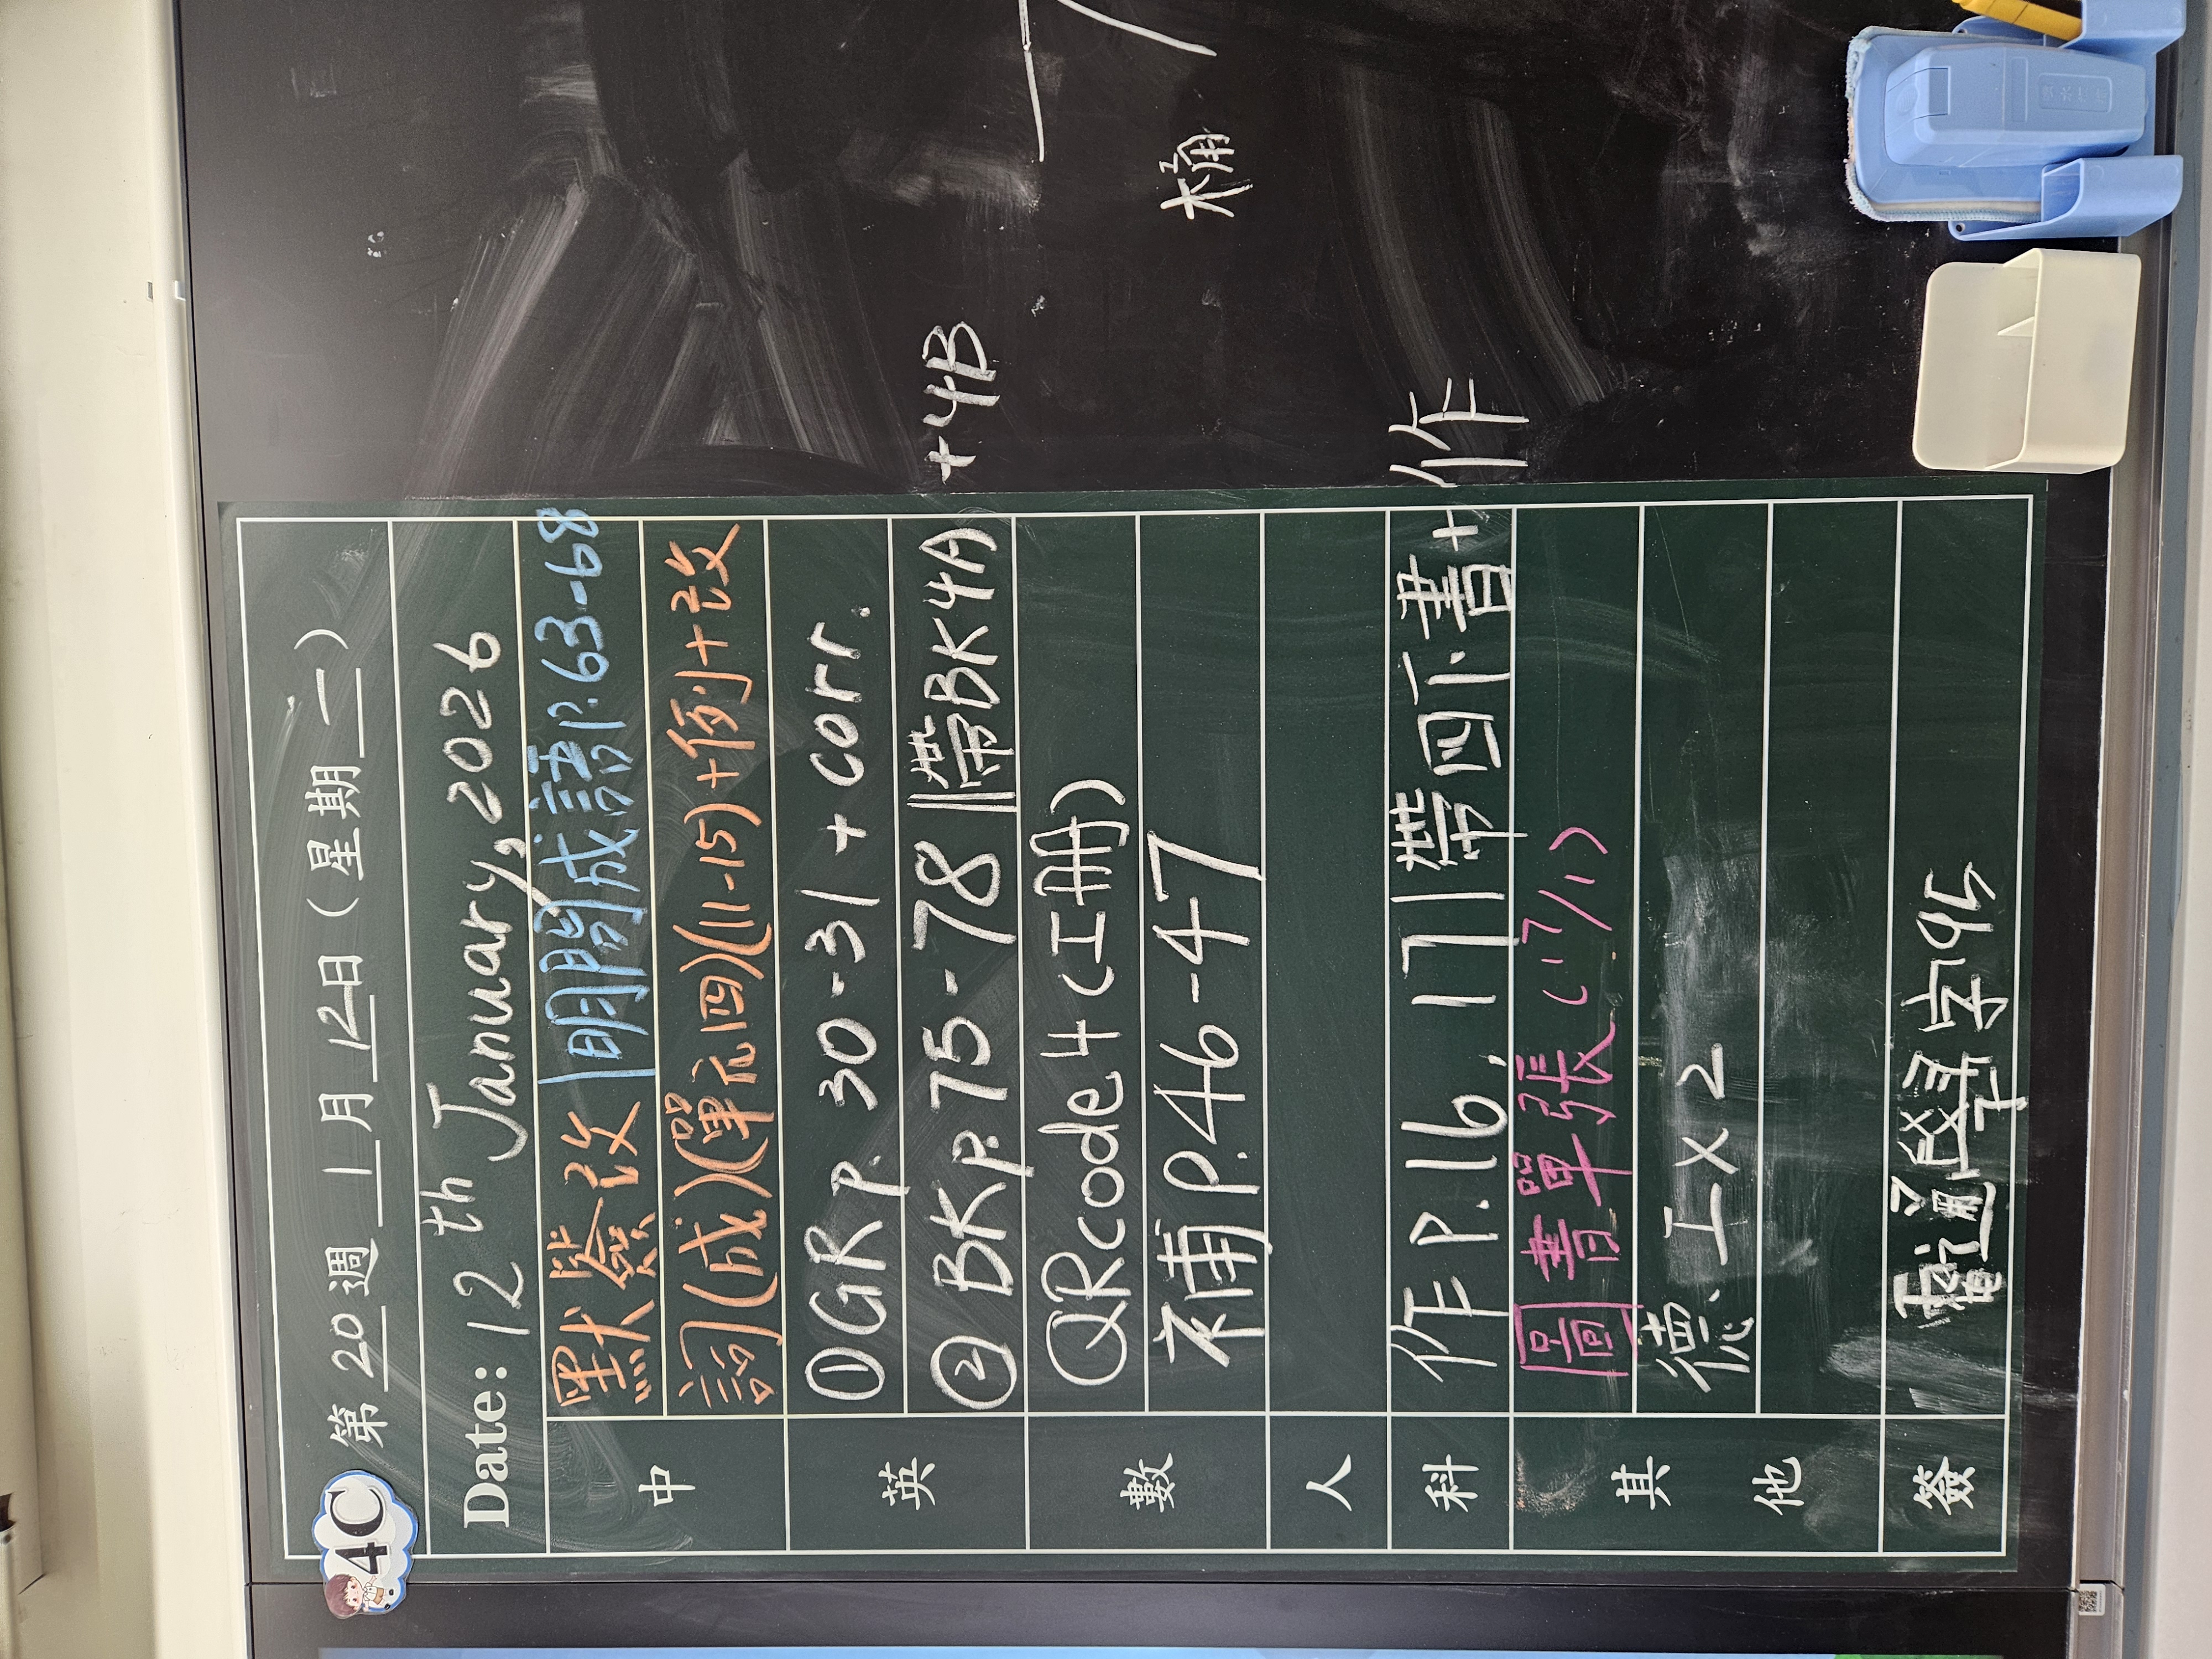 4C
第 20 週 1 月 12 日 ( 星 期 一 )
Date: 12 th January, 2026
中 默簽改 | 明閱成語P.63-68
詞(成)(單元四)(11-15)+例+改
英 ①GR P. 30-31 + corr.
② BK P. 75-78 || 帶BK4A +4B
數 QR code 4 (工冊)
補 P.46-47
人
科 作 P.16, 17 | 帶四下書+作
其他 圖書單張 (17/1)
德、工x2
簽
桶